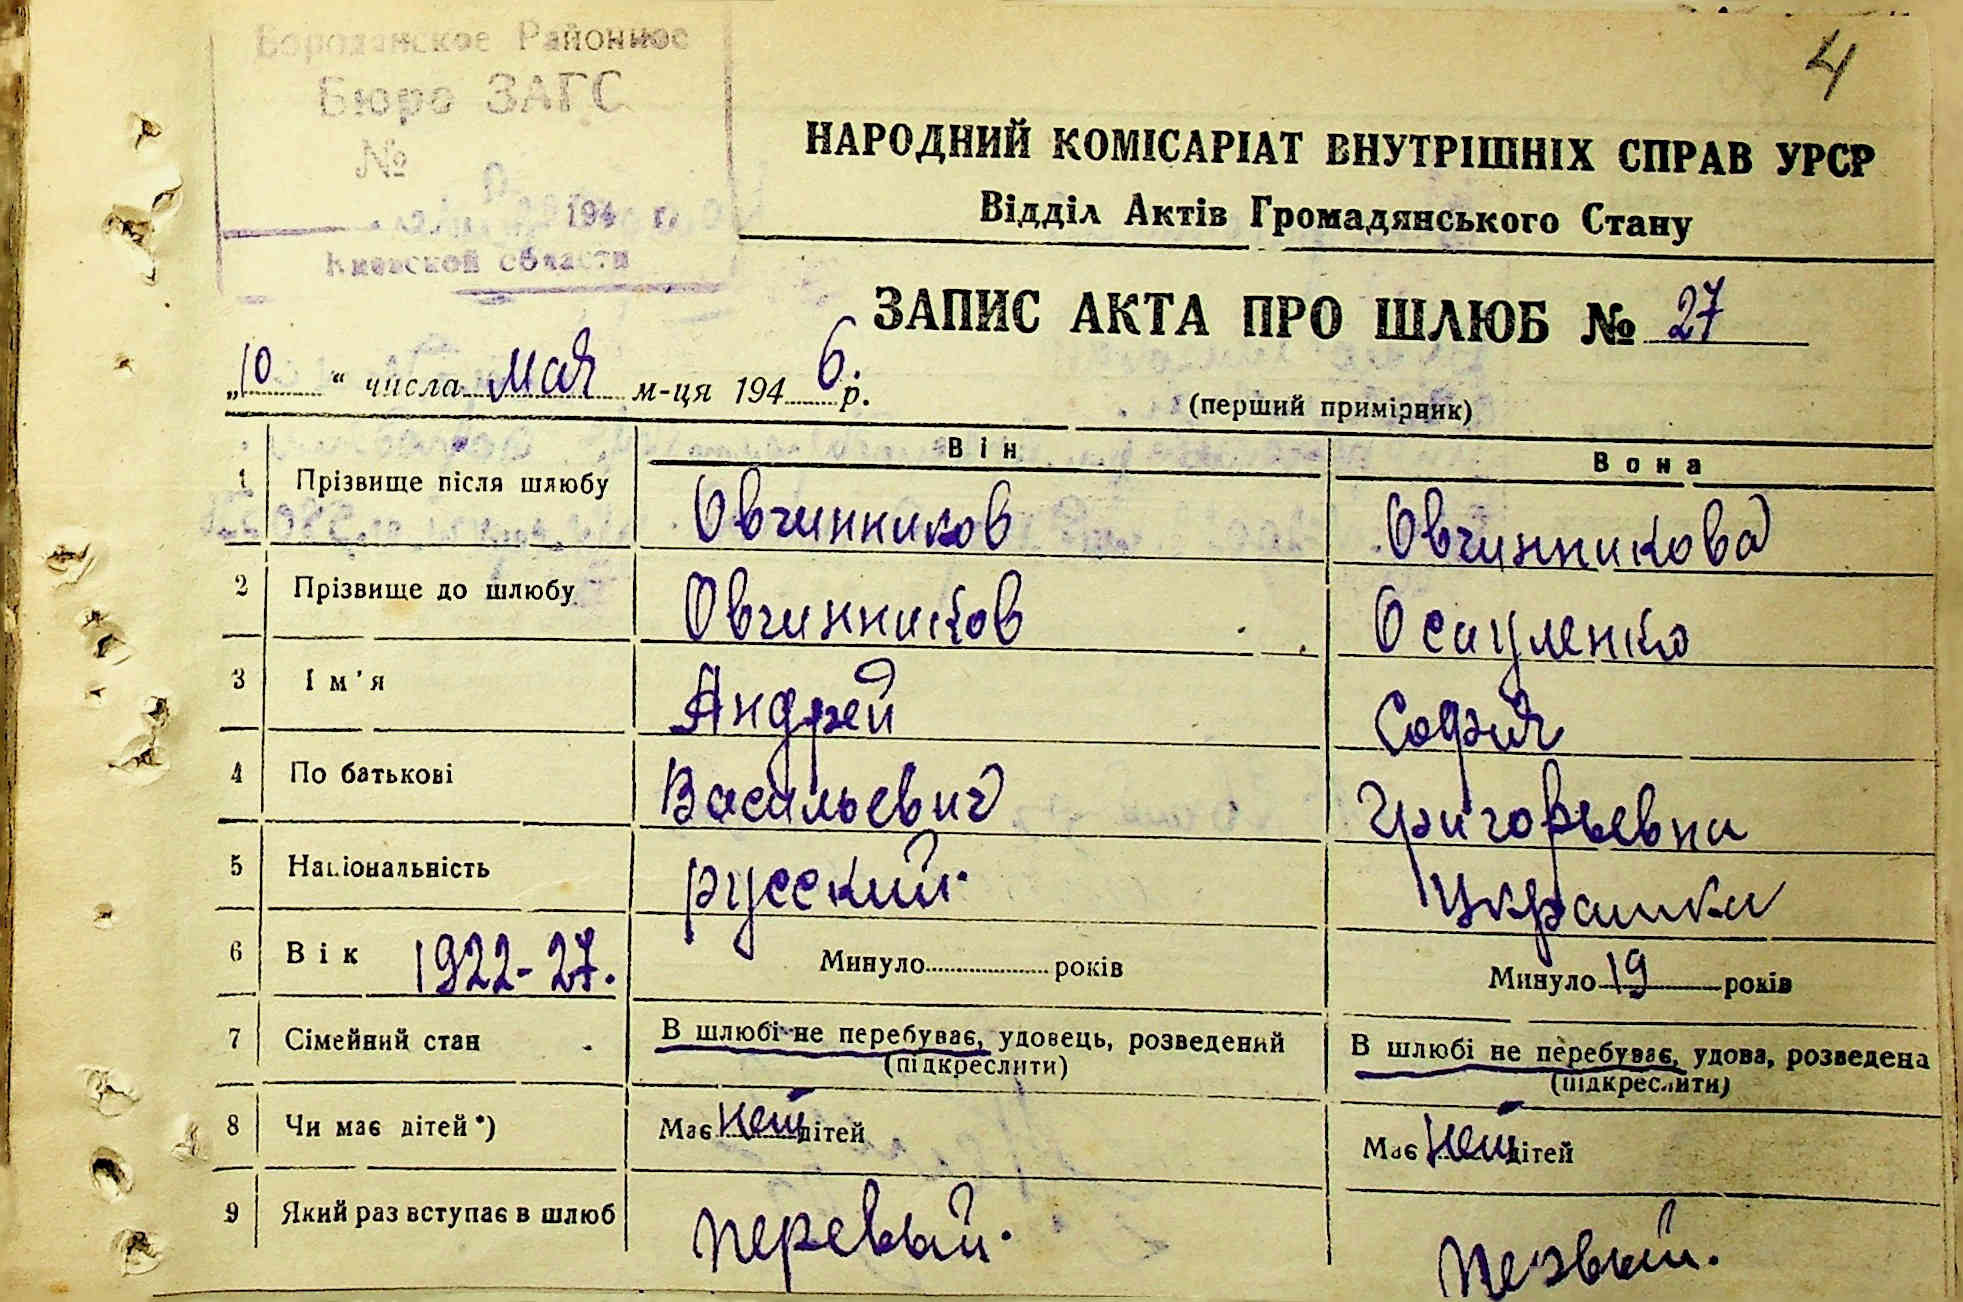 4
Бородянское Районное
Бюро ЗАГС
№
194 г.
Киевской области
НАРОДНИЙ КОМІСАРІАТ ВНУТРІШНІХ СПРАВ УРСР
Відділ Актів Громадянського Стану
ЗАПИС АКТА ПРО ШЛЮБ № 27
„10 “ числа мая м-ця 1946 р.
(перший примірник)
Він Вона
1 Прізвище після шлюбу Овчинников Овчинникова
2 Прізвище до шлюбу Овчинников Осауленко
3 Ім'я Андрей София
4 По батькові Васильевич Григорьевна
5 Національність русский. Украинка
6 Вік 1922-27. Минуло років Минуло 19 років
7 Сімейний стан В шлюбі не перебуває, удовець, розведений В шлюбі не перебуває, удова, розведена
(підкреслити) (підкреслити)
8 Чи має дітей*) Має нет дітей Має нет дітей
9 Який раз вступає в шлюб перевый. первый.